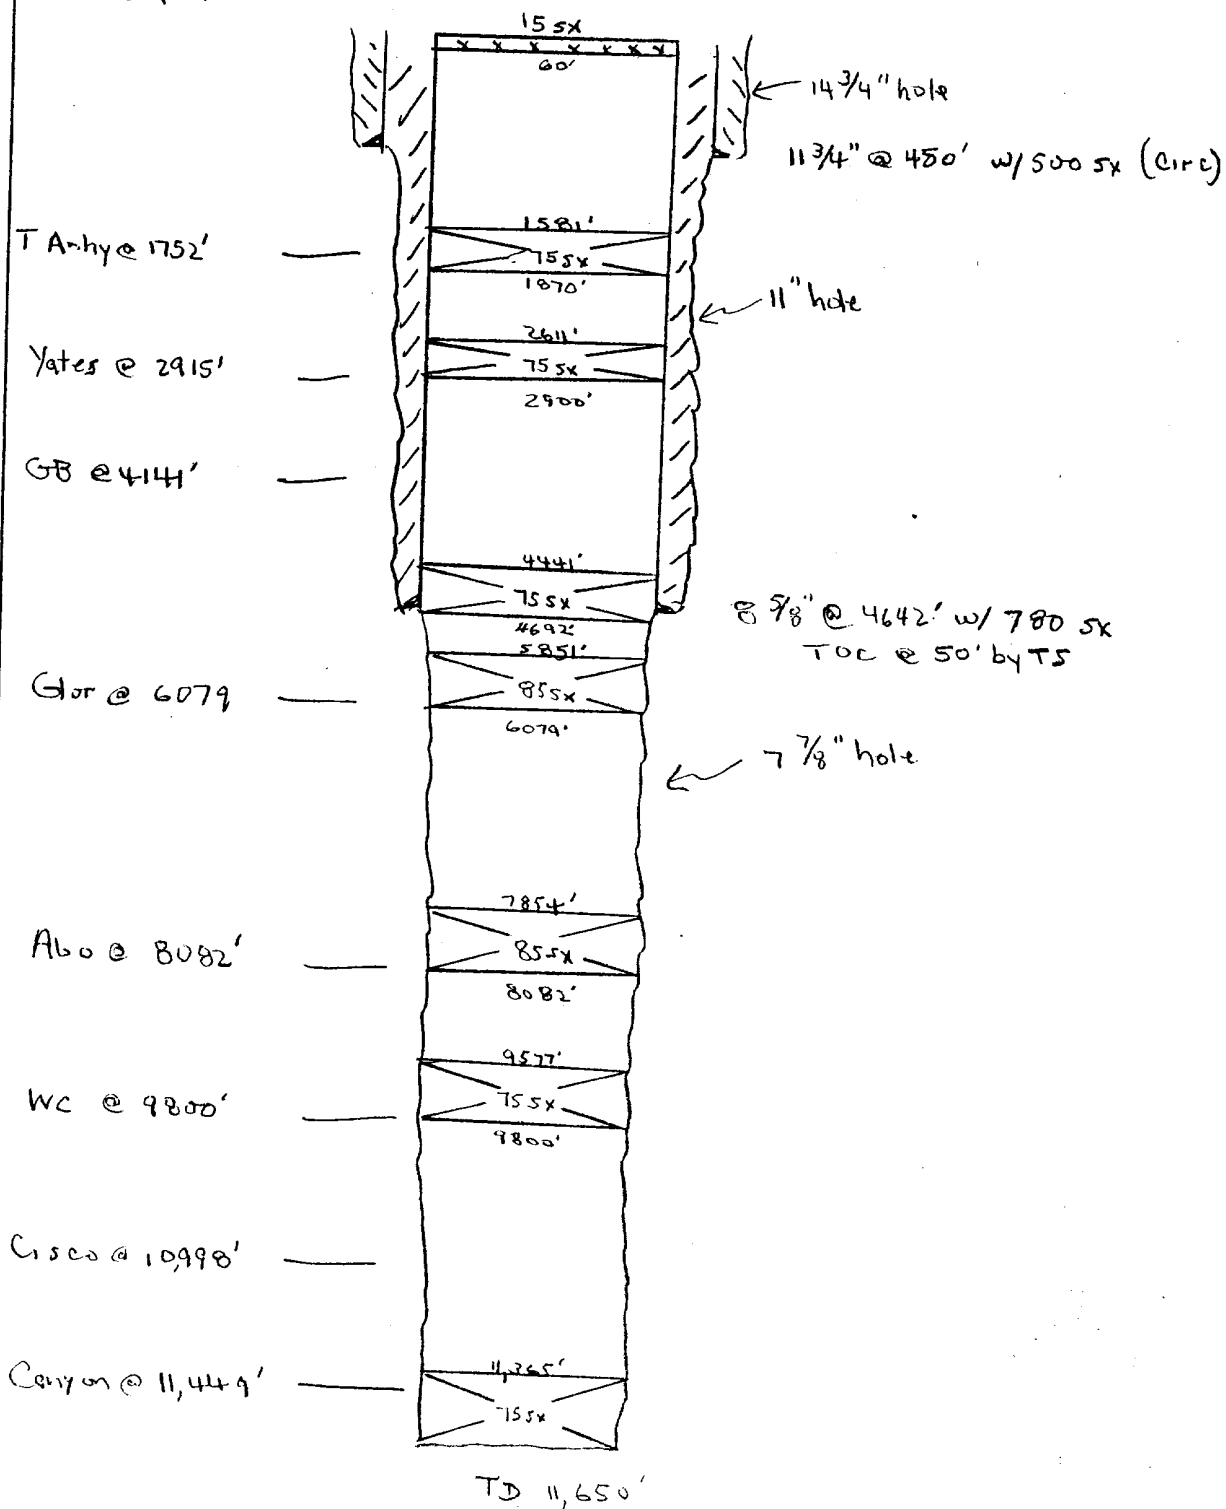 15 sx
60'
14 3/4" hole
11 3/4" @ 450' w/ 500 sx (Circ)
1581'
T Anhy @ 1752'
75 sx
1870'
11" hole
2611'
Yates @ 2915'
75 sx
2900'
GB @ 4141'
4441'
75 sx
8 5/8" @ 4642' w/ 780 sx
4692'
TOC @ 50' by TS
5851'
Glor @ 6079
85 sx
6079'
7 7/8" hole
7854'
Abo @ 8082'
85 sx
8082'
9577'
WC @ 9800'
75 sx
9800'
Cisco @ 10,998'
11,365'
Canyon @ 11,449'
75 sx
TD 11,650'